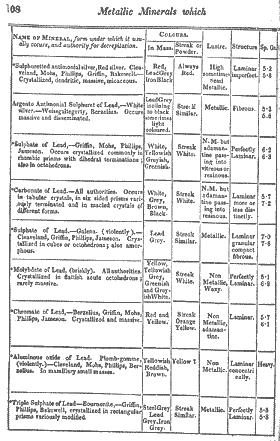 108
Metallic Minerals which
NAME OF MINERAL, form under which it usually occurs, and authority for decrepitation.
COLOURS.
In Mass.
Streak or Powder.
Lustre.
Structure
Sp. Gr.
*Sulphuretted antimonial silver, Red silver. Cleaveland, Mohs, Phillips, Griffin, Bakewell.—
Crystallized, dendritic, massive, micaceous.
Red, Lead Grey Iron Black
Always Red.
High sometimes Semi Metallic.
Laminar imperfect.
5.2
5.8
Argento Antimonial Sulphuret of Lead,—White silver.—Weissgultigerz, Berzelius. Occurs massive and disseminated.
Lead Grey inclining to black sometimes light coloured.
Streak Similar.
Metallic.
Fibrous.
*Sulphate of Lead.—Griffin, Mohs, Phillips, Jameson. Occurs crystallized commonly in rhombic prisms with dihedral terminations; also in octohedrons.
White, Yellowish Greyish, Greenish.
Streak White.
N. M. but adamantine passing into vitreous or resinous.
Perfectly Laminar.
6.2
6.3
*Carbonate of Lead.—All authorities. Occurs in tabular crystals, in six sided prisms variously terminated and in macled crystals of different forms.
White, Grey, Brown, Black.
Streak White.
N. M. but adamantine passing into resinous.
Laminar more or less distinctly.
5.7
7.2
*Sulphuret of Lead.—Galena. (violently).—Cleaveland, Griffin, Phillips, Jameson. Crystallized in cubes or octohedrons; also amorphous.
Lead Grey.
Streak Similar.
Metallic.
Laminar granular compact fibrous.
7.0
7.6
*Molybdate of Lead, (briskly). All authorities. Crystallized in acute octohedrons; rarely massive.
Yellow, Yellowish Grey, Greenish and Greyish White.
Streak White.
Non Metallic, Waxy.
Perfectly Laminar.
*Chromate of Lead,—Berzelius, Griffin, Mohs, Phillips, Jameson. Crystallized and massive.
Red and Yellow.
Streak Orange Yellow.
Non Metallic, adamantine.
Laminar.
5.7
6.1
*Aluminous oxide of Lead. Plomb-gomme, (violently).—Cleaveland, Mohs, Phillips, Berzelius. In mamillary small masses.
Yellowish Reddish, Brown.
Yellow ?
Non Metallic.
Laminar concentrically.
Heavy.
*Triple Sulphuret of Lead—Bournonite,—Griffin, Phillips, Bakewell, crystallized in rectangular prisms variously modified.
Steel Grey Lead Grey, Iron Grey.
Streak Similar.
Metallic.
Perfectly Laminar.
5.8